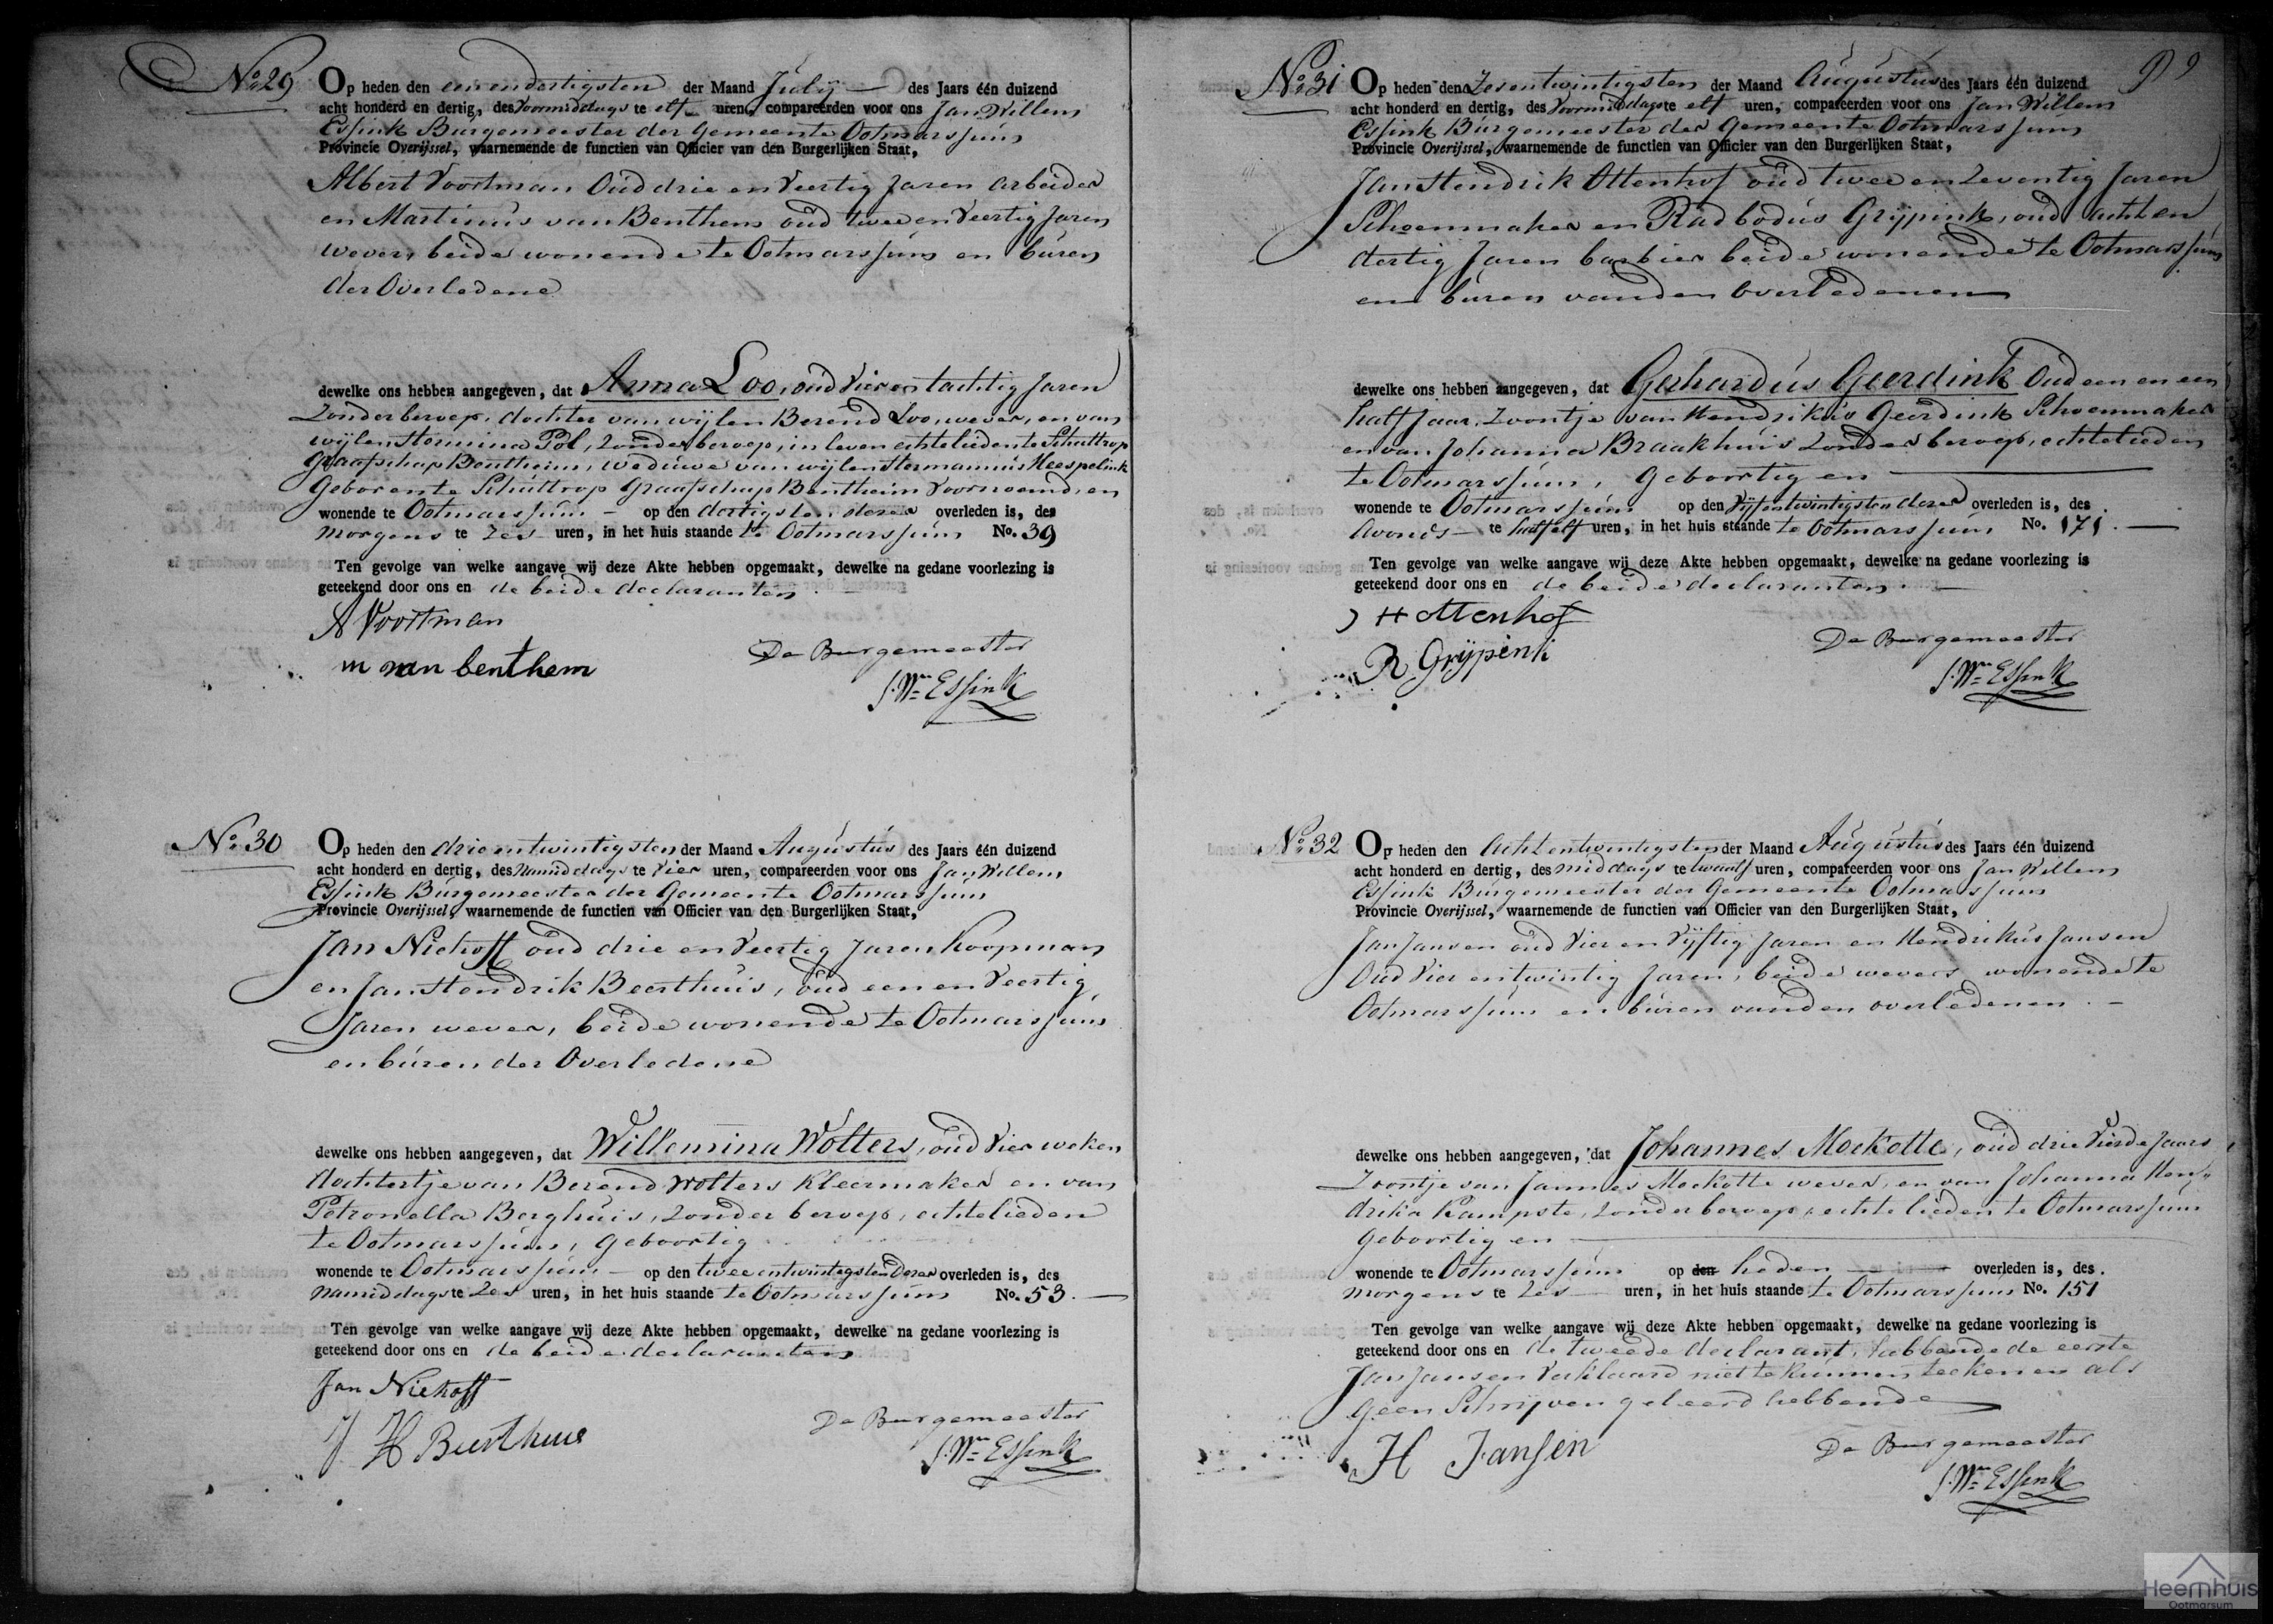 No 29
Op heden den een en dertigsten der Maand Julij des Jaars één duizend
acht honderd en dertig, des Voormiddags te elf uren, compareerden voor ons Jan Willem
Essink Burgemeester der Gemeente Ootmarssum
Provincie Overijssel, waarnemende de functien van Officier van den Burgerlijken Staat,
Albert Voortman Oud drie en Veertig Jaren arbeider
en Martinus van Benthem oud twee en Veertig Jaren
wever, beide wonende te Ootmarssum en buren
der Overledene
dewelke ons hebben aangegeven, dat Anna Loo, oud Vier en tachtig Jaren
Zonder beroep, dochter van wijlen Berend Loo, wever, en van
wijlen Hermina Pol, zonder beroep, in leven echtelieden te Schuttrop
Graafschap Bentheim, weduwe van wijlen Hermannus Heespelink
Geboren te Schuttrop Graafschap Bentheim Voornoemd, en
wonende te Ootmarssum op den dertigsten dezer overleden is, des
Morgens te Zes uren, in het huis staande te Ootmarssum No. 39
Ten gevolge van welke aangave wij deze Akte hebben opgemaakt, dewelke na gedane voorlezing is
geteekend door ons en de beide declaranten
A Voortman
m van benthem
De Burgemeester
J. Wm Essink
No 30
Op heden den drie en twintigsten der Maand Augustus des Jaars één duizend
acht honderd en dertig, des Namiddags te Vier uren, compareerden voor ons Jan Willem
Essink Burgemeester der Gemeente Ootmarssum
Provincie Overijssel, waarnemende de functien van Officier van den Burgerlijken Staat,
Jan Niehoff oud drie en Veertig Jaren Koopman
en Jan Hendrik Beerthuis, oud een en Veertig
Jaren wever, beide wonende te Ootmarssum
en buren der Overledene
dewelke ons hebben aangegeven, dat Willemina Wolters, oud Vier weken
dochtertje van Berend Wolters Kleermaker en van
Petronella Berghuis, zonder beroep, echtelieden
te Ootmarssum, Geboortig
wonende te Ootmarssum op den twee entwintigsten Dezer overleden is, des
Namiddags te Zes uren, in het huis staande te Ootmarssum No. 53.
Ten gevolge van welke aangave wij deze Akte hebben opgemaakt, dewelke na gedane voorlezing is
geteekend door ons en de beide declaranten
Jan Niehoff
J H Beerthuis
De Burgemeester
J. Wm Essink
No 31
Op heden den Zesentwintigsten der Maand Augustus des Jaars één duizend
acht honderd en dertig, des Voormiddags te elf uren, compareerden voor ons Jan Willem
Essink Burgemeester der Gemeente Ootmarssum
Provincie Overijssel, waarnemende de functien van Officier van den Burgerlijken Staat,
Jan Hendrik Ottenhof oud twee en Zeventig Jaren
Schoenmaker en Radbodus Grijpink, oud acht en
dertig Jaren barbier beide wonende te Ootmarssum
en buren van den Overledenen
dewelke ons hebben aangegeven, dat Gerhardus Geerdink Oud een en een
half Jaar, Zoontje van Hendrikus Geerdink Schoenmaker
en van Johanna Braakhuis Zonder beroep, echtelieden
te Ootmarssum, Geboortig en
wonende te Ootmarssum op den Vijfentwintigsten dezer overleden is, des
Avonds te half elf uren, in het huis staande te Ootmarssum No. 171.
Ten gevolge van welke aangave wij deze Akte hebben opgemaakt, dewelke na gedane voorlezing is
geteekend door ons en de beide declaranten
J H Ottenhof
R. Grijpink
De Burgemeester
J. Wm Essink
No 32
Op heden den Acht entwintigsten der Maand Augustus des Jaars één duizend
acht honderd en dertig, des middags te twaalf uren, compareerden voor ons Jan Willem
Essink Burgemeester der Gemeente Ootmarssum
Provincie Overijssel, waarnemende de functien van Officier van den Burgerlijken Staat,
Jan Jansen oud Vier en Vijftig Jaren en Hendrikus Jansen
Oud Vier entwintig Jaren, beide wevers wonende te
Ootmarssum en buren van den overledenen
dewelke ons hebben aangegeven, dat Johannes Mockotte, oud drie Vierde Jaars
Zoontje van Jannes Mockotte wever, en van Johanna Hen
drika Kampste, zonder beroep, echtelieden te Ootmarssum
Geboortig en
wonende te Ootmarssum op den heden overleden is, des
Morgens te Zes uren, in het huis staande te Ootmarssum No. 151
Ten gevolge van welke aangave wij deze Akte hebben opgemaakt, dewelke na gedane voorlezing is
geteekend door ons en de tweede declarant, hebbende de eerste
Jan Jansen Verklaard niet te kunnen teekenen als
Geen Schrijven geleerd hebbende
H Jansen
De Burgemeester
J. Wm Essink
Heemhuis
Ootmarsum